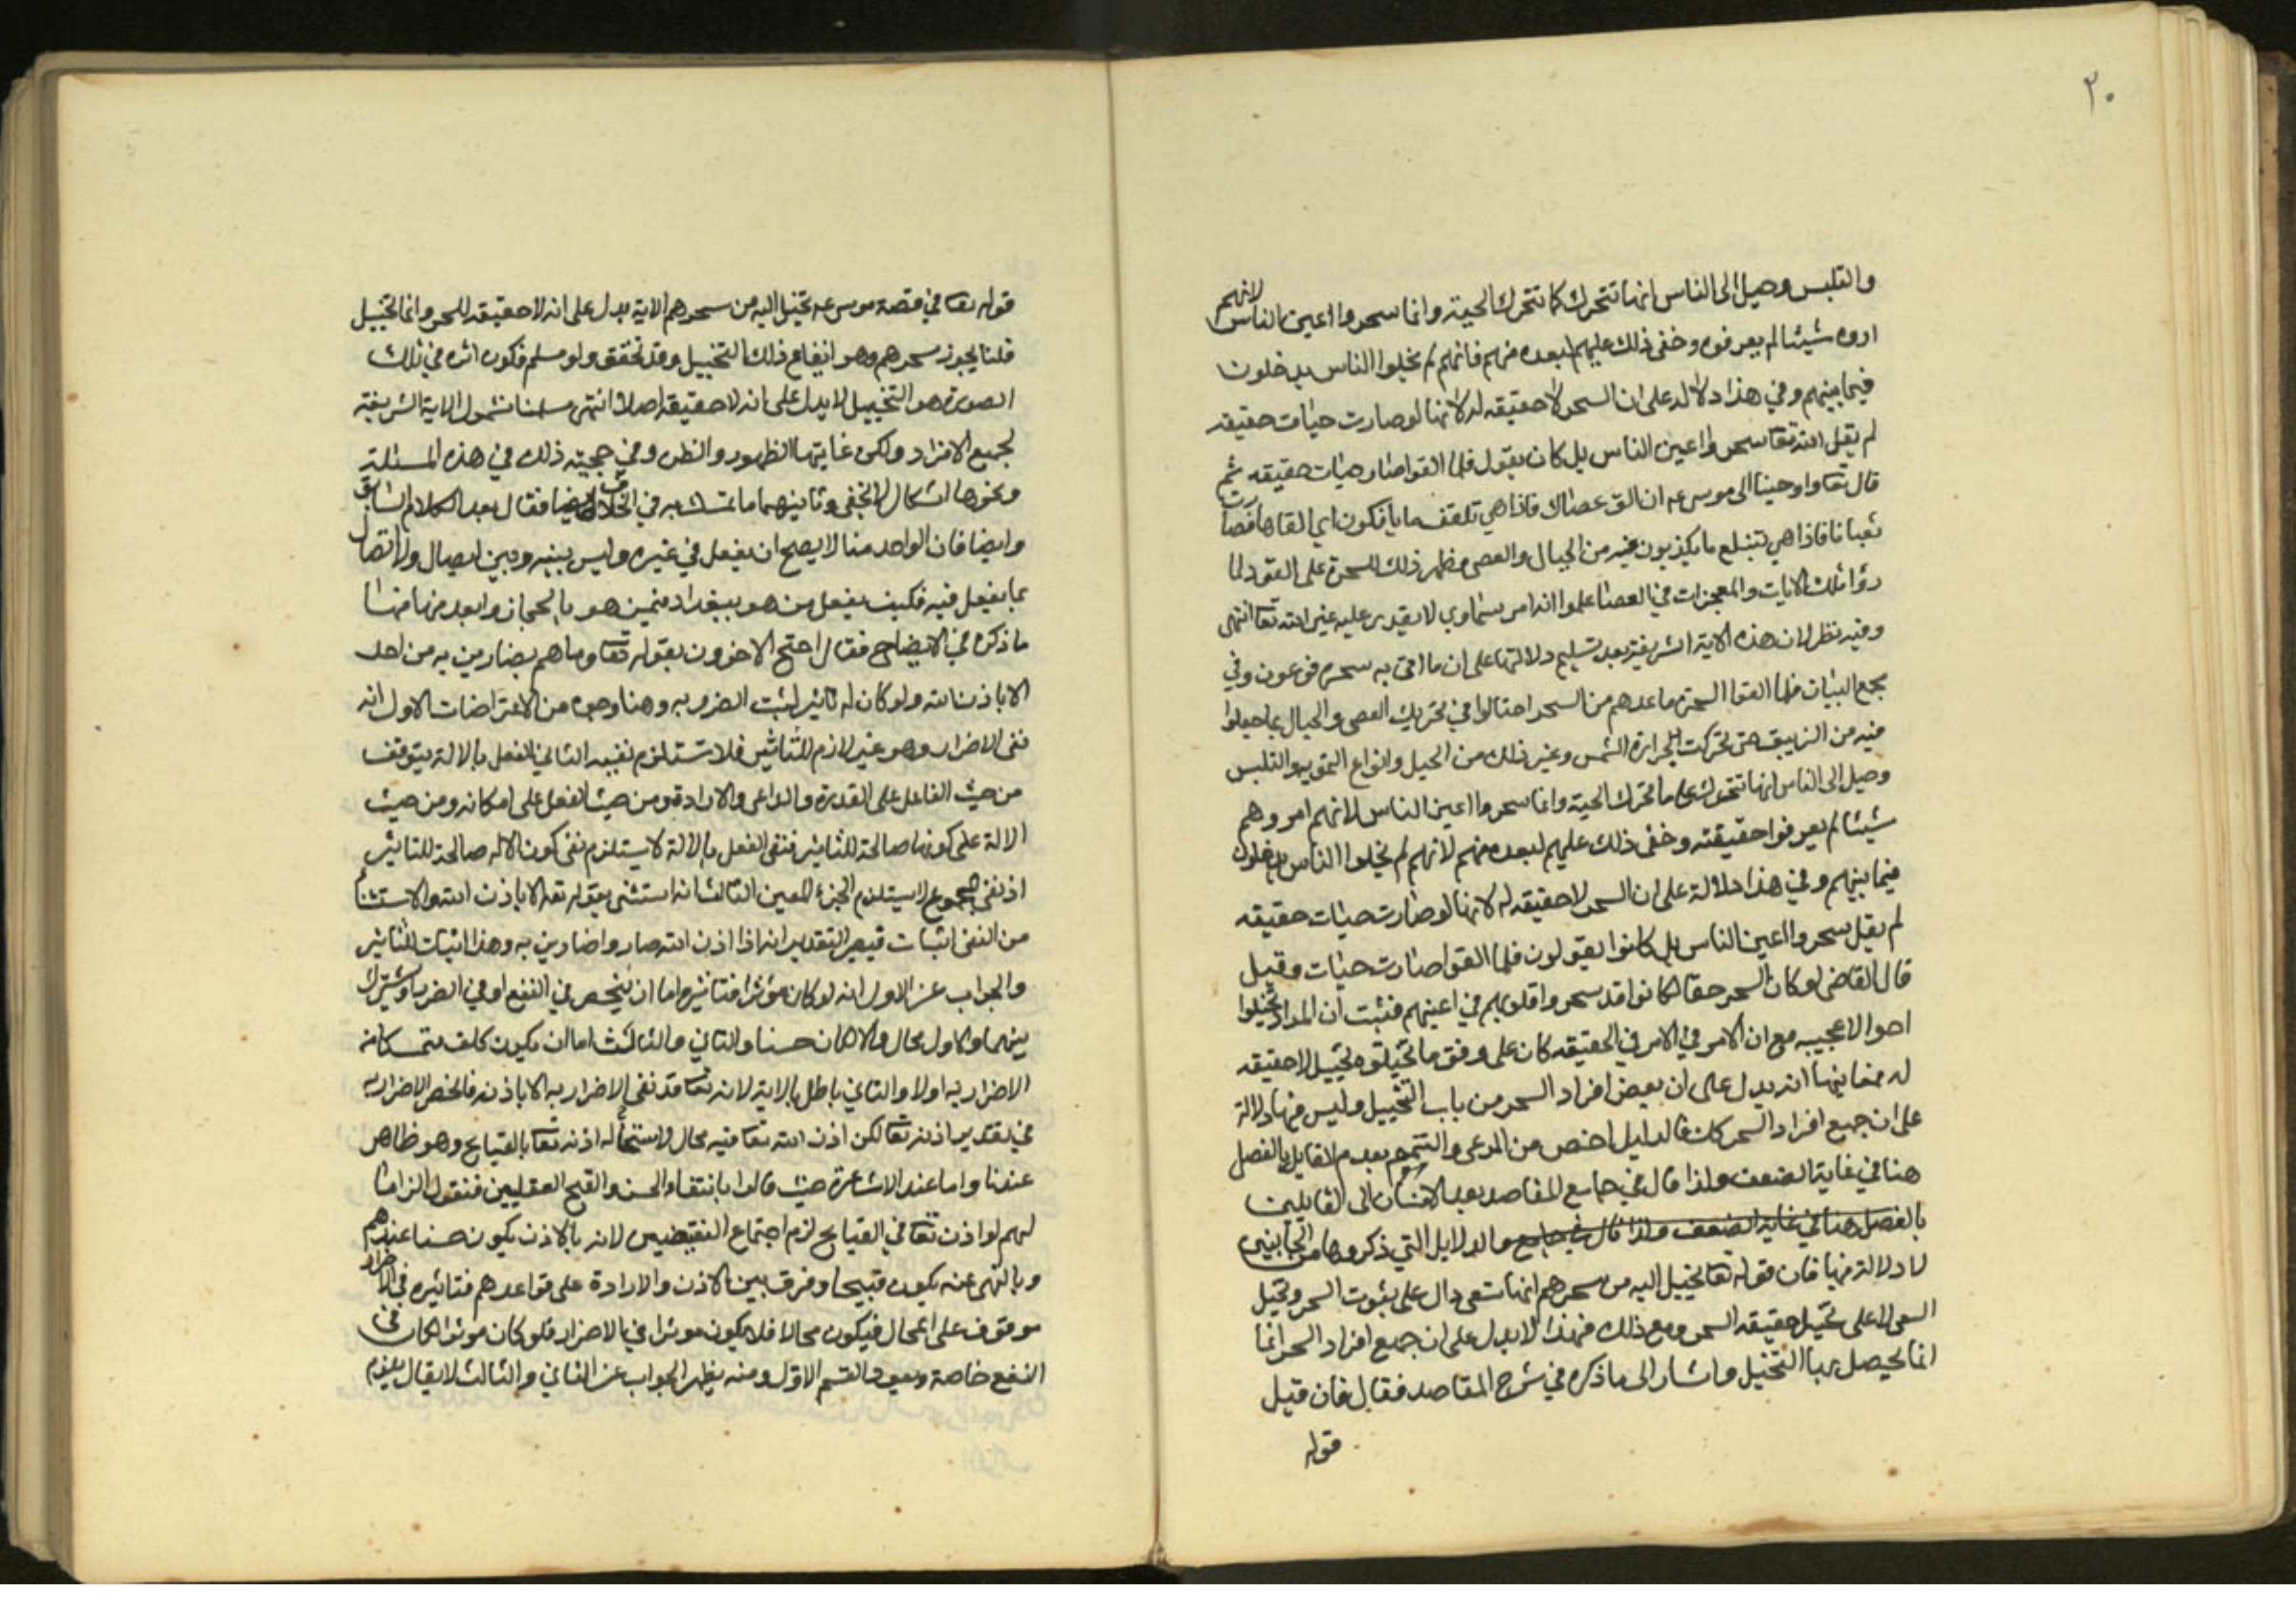 ٢٠
والتلبس وخيل الى الناس انها تتحرك كما تتحرك الحية وانما سحروا اعين الناس لانهم
اروه شيئا لم يعرفوه وخفى ذلك عليهم لبعده منهم فانهم لم يخلوا الناس يدخلون
فيما بينهم وفي هذا دلالة على ان السحر لا حقيقه له لانها لو صارت حيات حقيقه
لم يقل الله تعا سحروا اعين الناس بل كان يقول فلما القوا صارت حيات حقيقه ثم
قال تعا واوحينا الى موسى عه ان الق عصاك فاذا هي تلقف ما يافكون اي القاها فصارت
ثعبانا فاذا هي تبتلع ما يكذبون فيه من الجبال والعصي فظهر ذلك للسحرة على الفور لما
رؤا تلك الايات والمعجزات في العصا علموا انه امر سماوي لا يقدر عليه غير الله تعا انتهى
وفيه نظر لان هذه الاية الشريفة بعد تسليم دلالتها على ان ما اتى به سحرة فرعون وفي
مجمع البيان فلما القوا السحرة ما عندهم من السحر احتالوا في تحريك العصي والحبال بما جعلوا
فيه من الزيبق حتى تحركت بحرارة الشمس وغير ذلك من الحيل وانواع التمويه والتلبس
وخيل الى الناس انها تتحرك على ما تتحرك الحية وانما سحروا اعين الناس لانهم اروهم
شيئا لم يعرفوا حقيقته وخفى ذلك عليهم لبعده منهم لانهم لم يخلوا الناس يدخلون
فيما بينهم وفي هذا دلالة على ان السحر لا حقيقه له لانها لو صارت حيات حقيقه
لم يقل سحروا اعين الناس بل كانوا يقولون فلما القوا صارت حيات وقيل
قال القاضى لو كان السحر حقا لكانوا قد سحروا قلوبهم في اعينهم فثبت ان المراد تخيلوا
احوالا عجيبه مع ان الامر في الامر في الحقيقه كان على وفق ما تخيلوه تخييل لا حقيقه
له فغايتها انه يدل على ان بعض افراد السحر من باب التخييل وليس فيها دلالة
على ان جميع افراد السحر كان فالدليل اخص من المدعى والتتميم بعدم القايل بالفصل
هنا في غاية الضعف ولذا قال في جامع المقاصد بعد الاشارة الى القايلين
بالفصل هنا في غاية الضعف ولذا قال في جامع والدلايل التي ذكروها من الجانبين
لا دلالة فيها فان قوله تعا يخيل اليه من سحرهم انها تسعى دال على ثبوت السحر وتخيل
السعي لا على تخيل حقيقه السحر ومع ذلك فهذا لا يدل على ان جميع افراد السحر انما
انما يحصل بها التخيل واشار الى ما ذكره في شرح المقاصد فقال فان قيل
قوله
قوله تعا في قصة موسى عه يخيل اليه من سحرهم الاية يدل على انه لا حقيقه للسحر وانما تخييل
قلنا يجوز سحرهم وهو ايقاع ذلك التخييل وقد تحقق ولو سلم فكون اثره في تلك
الصورة هو التخييل لا يدل على انه لا حقيقه اصلا انتهى سلمنا شمول الاية الشريفة
لجميع الافراد ولكن غايتها الظهور والظن وفي حجيته ذلك في هذه المسئلة
ونحوها اشكال لا يخفى وثانيهما ما تمسك به في الخلاف ايضا فقال بعد الكلام السابق
وايضا فان الواحد منا لا يصح ان يفعل في غيره وليس بينه وبين ايصال ولا اتصال
بما يفعل فيه فكيف يفعل من هو ببغداد فيمن هو بالحجاز وابعد منها منها
ما ذكره في الايضاح فقال احتج الاخرون بقوله تعا وما هم بضارين به من احد
الا باذن الله ولو كان له تاثير لثبت الضرر به وهنا وجوه من الاعتراضات الاول انه
نفى الاضرار وهو غير لازم للتاثير فلا تستلزم نفيه الثاني الفعل بالالة يتوقف
من حيث الفاعل على القدرة والداعى والارادة ومن حيث الفعل على امكانه ومن حيث
الالة على كونها صالحة للتاثير فنفى الفعل بالالة لا يستلزم نفى كون الاله صالحة للتاثير
اذ نفى المجموع لا يستلزم الجزء المعين الثالث انه استثنى بقوله تعه الا باذن الله والاستثناء
من النفى اثبات فيصير التقدير انه اذا اذن الله صاروا ضارين به وهذا اثبات للتاثير
والجواب عن الاول انه لو كان مؤثرا فتاثيره اما ان ينحصر في النفع او في الضرر او يشترك
بينهما والاول محال والا لكان حسنا والثاني والثالث اما ان يكون كلف متمسكا منه
الاضرار به اولا والثاني باطل بالاية لانه تعا قد نفى الاضرار به الا باذنه فانحصر الاضرار به
في تقدير اذنه تعا لكن اذن الله تعا فيه محال لاستحالة اذنه تعا بالقبايح وهو ظاهر
عندنا واما عند الاشاعرة حيث قالوا بانتفاء الحسن والقبح العقليين فنقول الزاما
لهم لو اذن تعا في القبايح لزم اجتماع النقيضين لانه بالاذن يكون حسنا عندهم
وبالنهى عنه يكون قبيحا وفرق بين الاذن والارادة على قواعدهم فتاثيره في الاضرار
موقوف على المحال فيكون محالا فلا يكون موثرا في بالاضرار فلو كان موثرا لكان في
النفع خاصة ويعود القسم الاول ومنه يظهر الجواب عن الثاني والثالث لا يقال يلزم